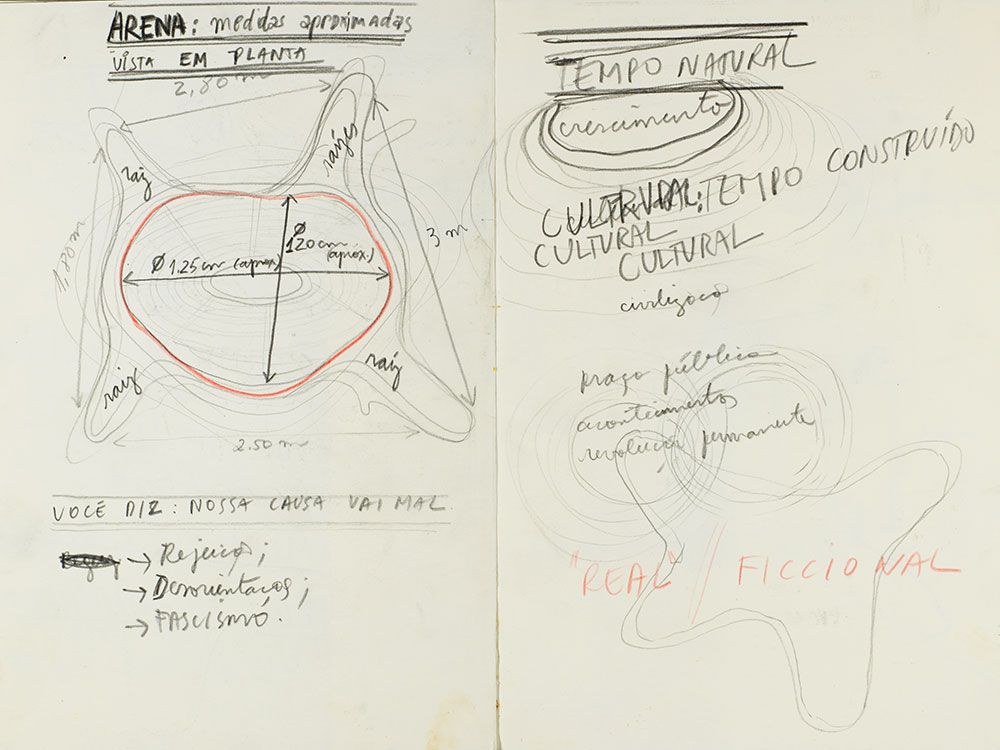 ARENA: medidas aproximadas
VISTA EM PLANTA
2,80 m
raiz
raízes
1,80 m
3 m
Ø 1.25 cm (aprox.)
Ø
120 cm
(aprox.)
raiz
raiz
2.50 m
VOCE DIZ: NOSSA CAUSA VAI MAL.
→ Rejeição;
→ Desorientação;
→ FASCISMO.
TEMPO NATURAL
crescimento
CULTURAL: TEMPO CONSTRUÍDO
CULTURAL
CULTURAL
praça pública
acontecimentos
revolução permanente
"REAL" // FICCIONAL